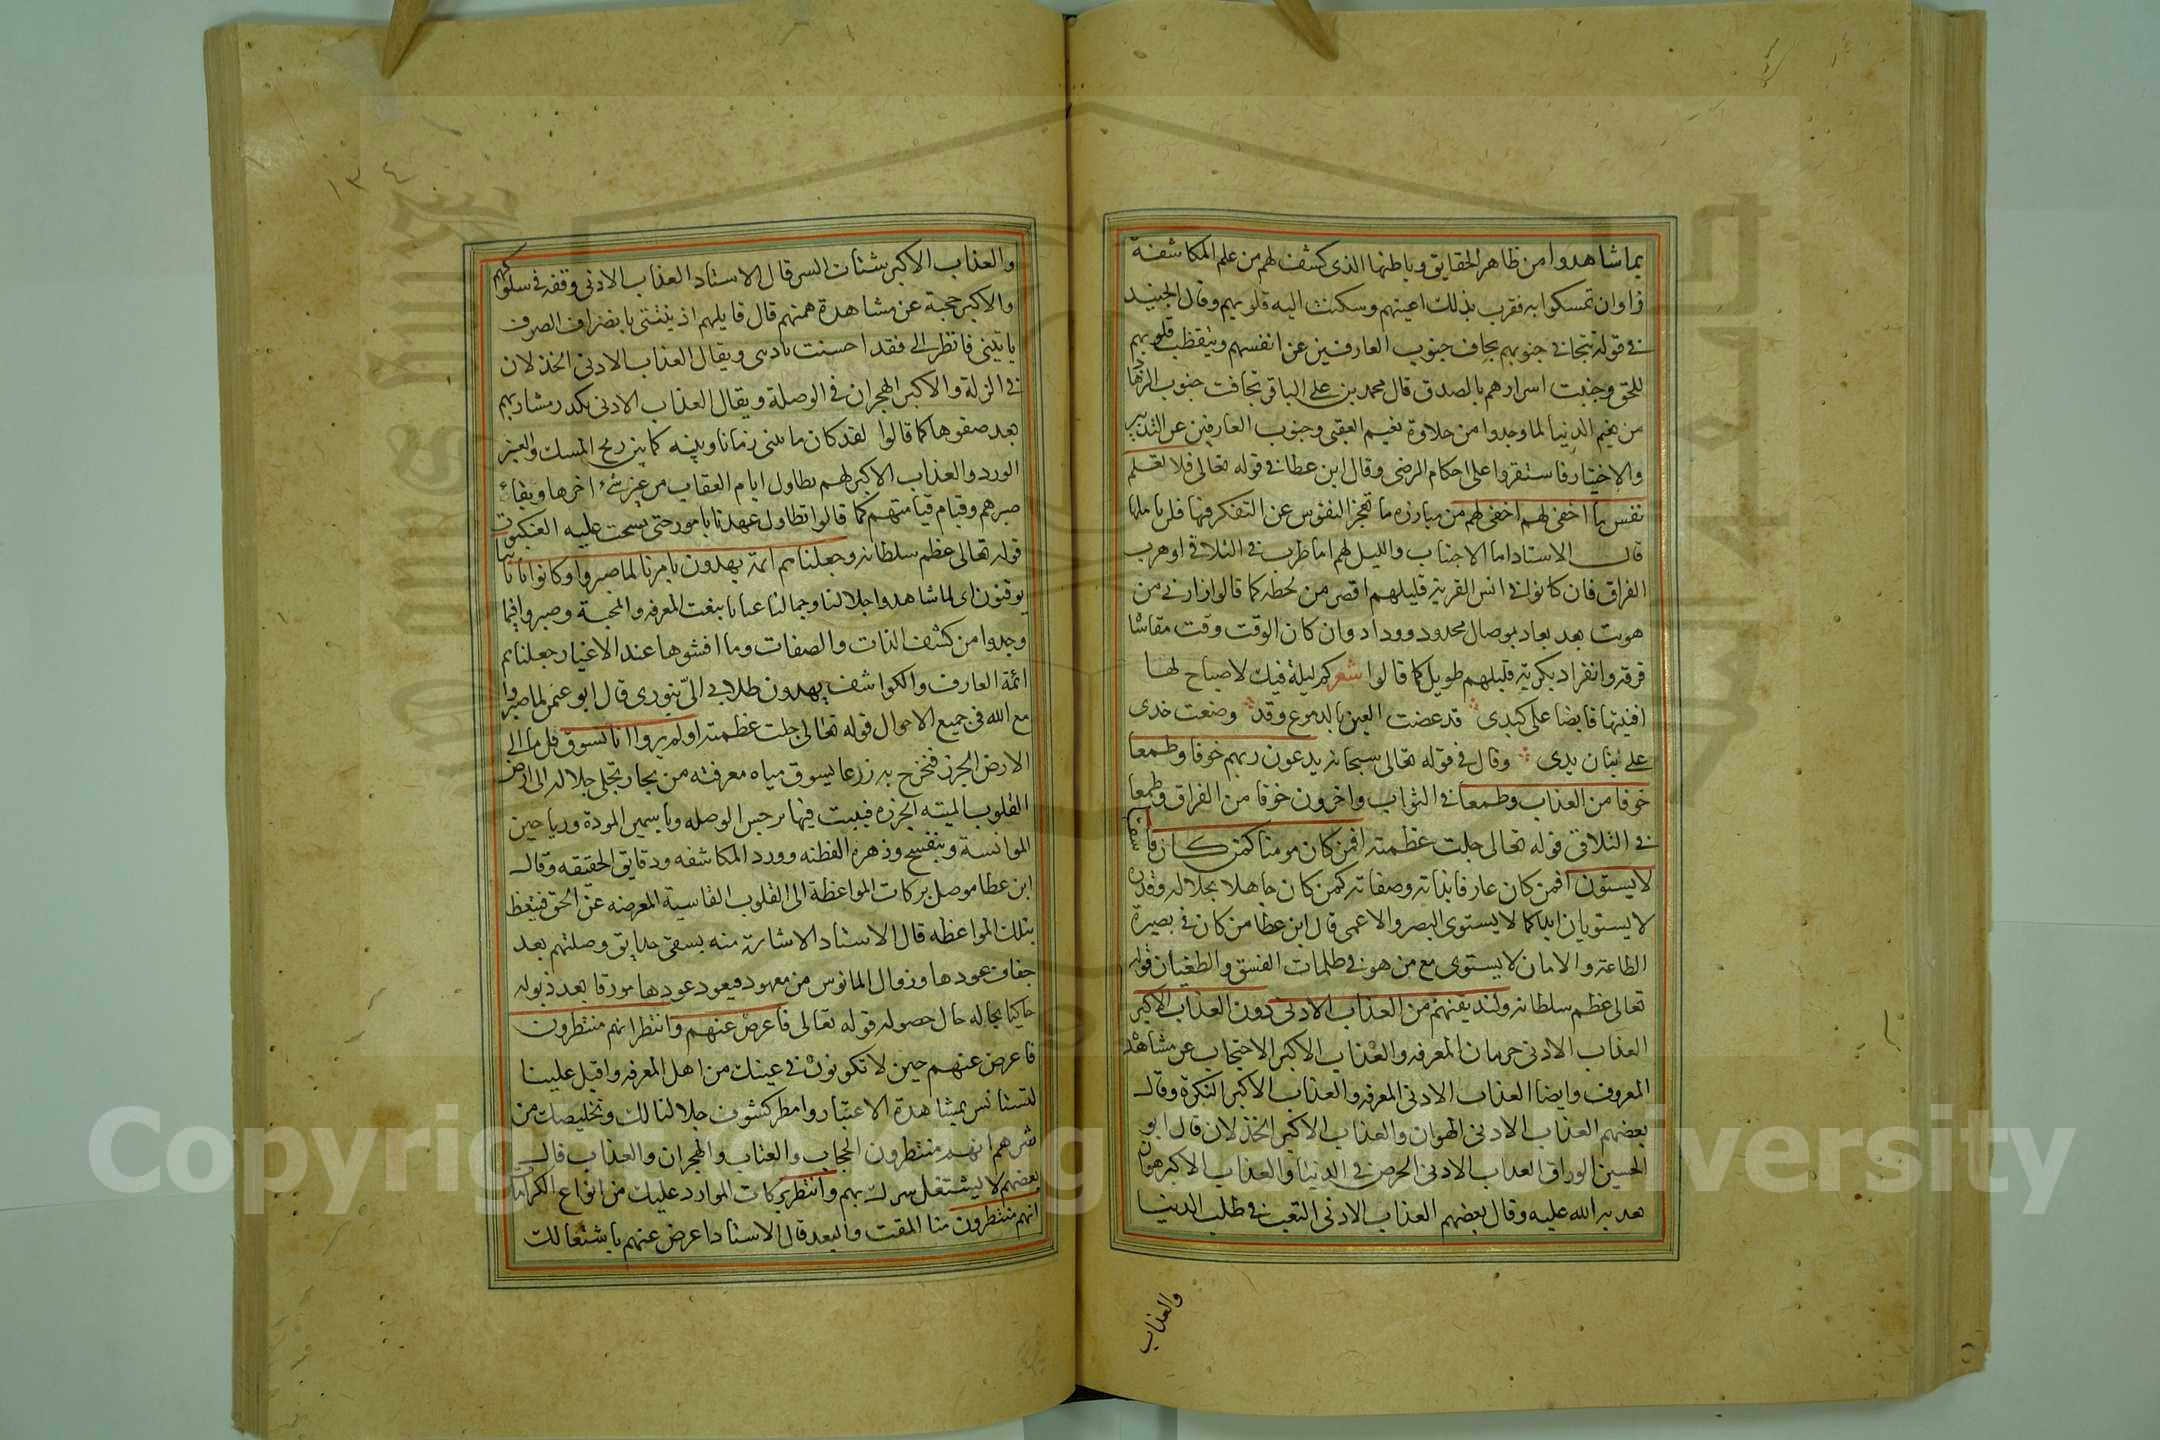 بما شاهدوا من ظاهر الحقايق وباطنها الذى كشف لهم من علم المكاشفة
فراوان تمسكوا به فقرب بذلك اعينهم وسكنت اليه قلوبهم وقال الجنيد
فى قوله تتجافى جنوبهم يجاف جنوب العارفين عن انفسهم ويتيقظ قلوبهم
للحق وجنبت اسرارهم بالصدق قال محمد بن على الباقر تجافت جنوب الزهاد
من نعيم الدنيا لما وجدوا من حلاوة نعيم العقبى وجنوب العارفين عن التدبير
والاختيار فاستقروا على احكام الرضى وقال ابن عطا فى قوله تعالى فلا تعلم
نفس ما اخفى لهم اخفى لهم من مبارزه ما تعجز النفوس عن التفكر فيها
قال الاستاد اما الاحباب والليل لهم اما طرب فى التلاقى او هرب
الفراق فان كانوا فى انس القربة فليلهم اقصر من لحظه كما قالوا زارنى من
هويت بعد بعاد بوصال محدود ووداد وان كان الوقت وقت مقاساة
فرقة وانفراد بكربة فليلهم طويل كما قالوا شعر كم ليلة فيك لا صباح لها
افنيتها قابضا على كبدى قد غصت العين بالدموع وقد وضعت خدى
على بنان يدى وقال فى قوله تعالى سبحانه يدعون ربهم خوفا وطمعا
خوفا من العذاب وطمعا فى الثواب واخرون خوفا من الفراق وطمعا
فى التلاقى قوله تعالى جلت عظمته افمن كان مومنا كمن كان فاسقا
لا يستون افمن كان عارفا بذاته وصفاته كمن كان جاهلا بجلاله وقدره
لا يستويان ابدا كما لا يستوى البصر والاعمى قال ابن عطا من كان فى بصيرة
الطاعة والامان لا يستوى مع من هو فى ظلمات الفسق والطغيان قوله
تعالى عظم سلطانه ولنديقنهم من العذاب الادنى دون العذاب الاكبر
العذاب الادنى حرمان المعرفه والعذاب الاكبر الاحتجاب عن مشاهدة
المعروف وايضا العذاب الادنى المعرفه والعذاب الاكبر النكرة وقال
بعضهم العذاب الادنى الهوان والعذاب الاكبر الخذلان قال ابو
الحسين الوراق العذاب الادنى الحرص فى الدنيا والعذاب الاكبر هوان
بعد بر الله عليه وقال بعضهم العذاب الادنى التعب فى طلب الدنيا
والعذاب
١٣٤
والعذاب الاكبر شتات السر قال الاستاد العذاب الادنى وقفه فى سلوكهم
والاكبر حجبة عن مشاهدة همتهم قال قايلهم
فانظر الى فقد احسنت تادبى ويقال العذاب الادنى الخذلان
فى الزلة والاكبر الهجران فى الوصلة ويقال العذاب الادنى بكدر مشاربهم
بعد صفوها كما قالوا لقد كان ما بينى زمانا وبينه كما بين ريح المسك والعنبر
الورد والعذاب الاكبر لهم بطاول ايام العقاب من غير شىء اخرها وبقاء
صبرهم وقيام قيامتهم كما قالوا تطاول عهدنا حتى نسجت عليه العنكبوت
قوله تعالى عظم سلطانه وجعلنا منهم ائمة يهدون بامرنا لما صبروا وكانوا باياتنا
يوقنون اى لما شاهدوا جلالنا وجمالنا عيانا بنعت المعرفه والمحبة وصبروا فيما
وجدوا من كشف الذات والصفات وما افشوها عند الاغيار جعلناهم
ائمة العارف والكواشف يهدون طلابى الى بنورى قال ابو عثمن لما صبروا
مع الله فى جميع الاحوال قوله تعالى جلت عظمته اولم يروا انا نسوق الماء الى
الارض الجرز فنخرج به زرعا يسوق مياه معرفته من بحار تجلى جلاله الى ارض
القلوب الميته الجرزه فينبت فيها نرجس الوصله وياسمين المودة ورياحين
الموانسة وبنفسج وزهرة الفطنه وورد المكاشفه ودقايق الحقيقه وقال
ابن عطا موصل بركات المواعظة الى القلوب القاسية المعرضه عن الحق فيتعظ
بتلك المواعظه قال الاستاد الاشارة منه يسقى حدايق وصلتهم بعد
جفاف عودها وزوال المانوس من معهود فيعود عودها مورقا بعد ذبوله
حاكيا بحاله حال حصوله قوله تعالى فاعرض عنهم وانتظر انهم منتظرون
فاعرض عنهم حين لا تكونون فى عينك من اهل المعرفه واقبل علينا
لتستانس بمشاهدة الاعتبار وامطر كشوف جلالنا لك وتخليصك من
شرهم انهم منتظرون الحجاب والعتاب والهجران والعذاب قال
بعضهم لا يشتغل سرك بهم وانتظر بركات الموارد عليك من انواع الكرامات
انهم منتظرون منا المقت والبعد قال الاستاد اعرض عنهم باشتغالك
Copyright © King Saud University